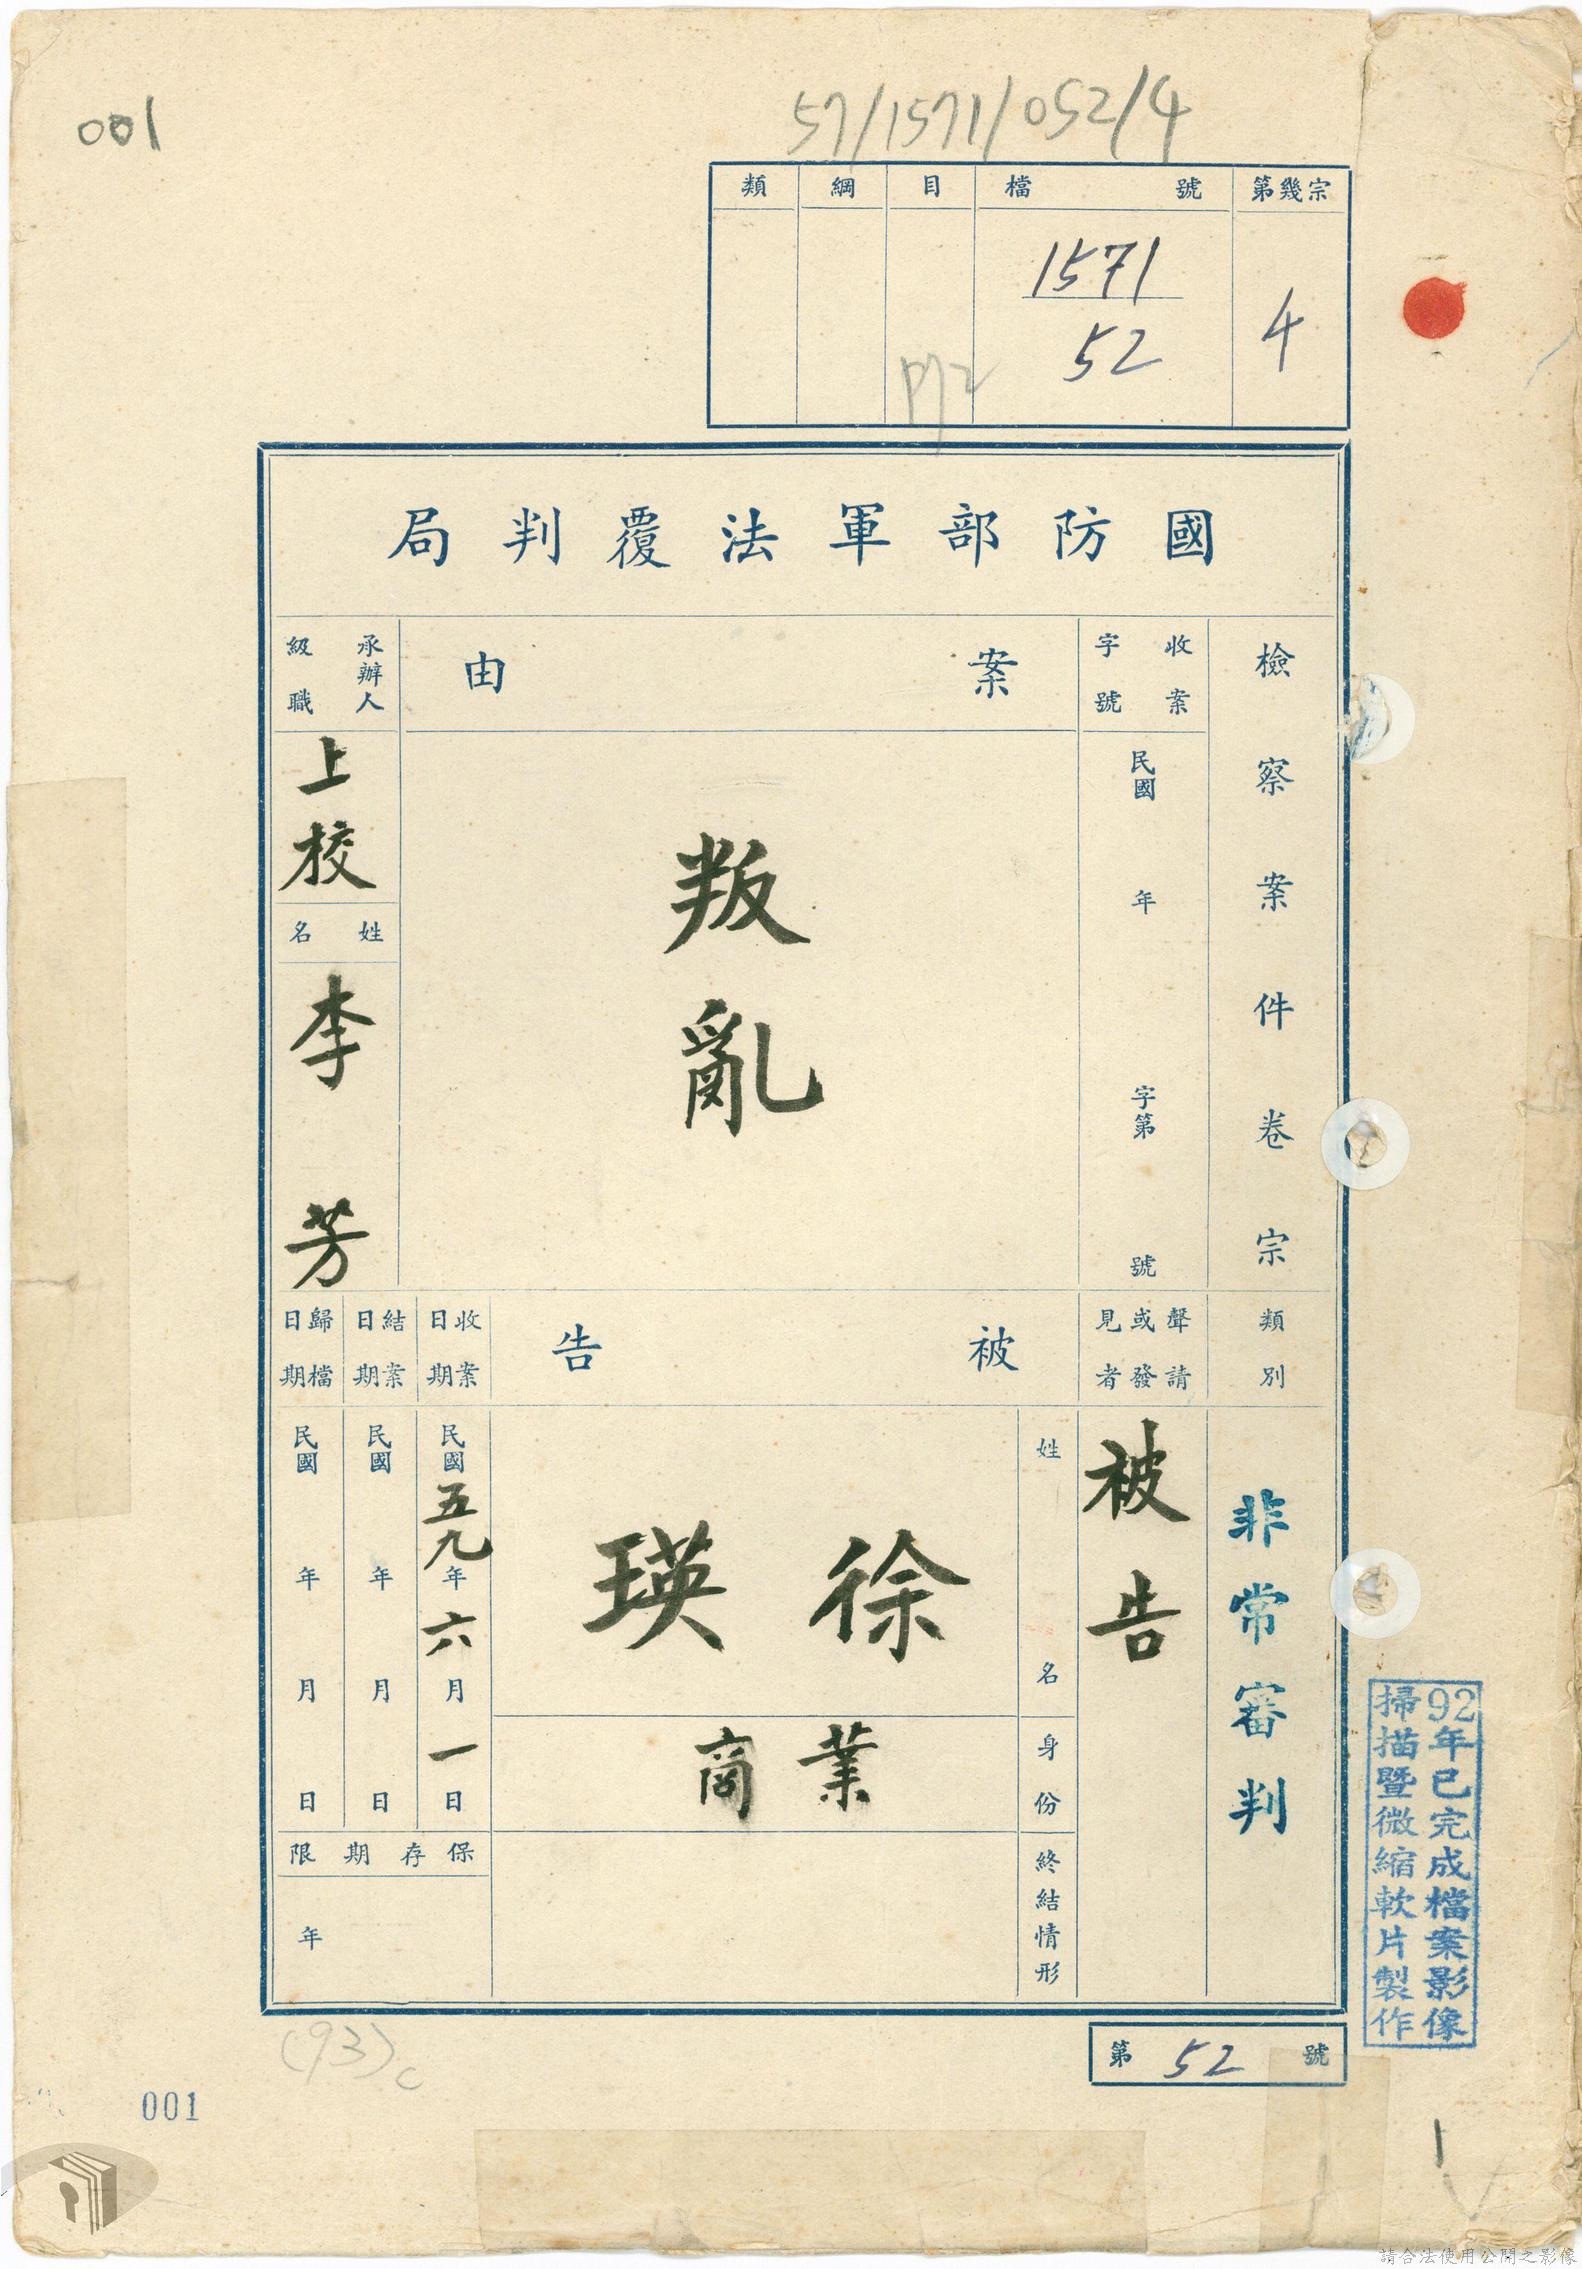 001
57/1571/052/4
第幾宗
檔號
目
綱
類
4
1571
52
國防部軍法覆判局
檢察案件卷宗
收案字號
民國 年 字第 號
案由
叛亂
承辦人級職
上校
姓名
李芳
類別
非常審判
聲請或發見者
被告
被告
姓名
徐瑛
身份
業商
終結情形
收案日期
民國五九年六月一日
結案日期
民國 年 月 日
歸檔日期
民國 年 月 日
保存期限
年
第52號
92年已完成檔案影像
掃描暨微縮軟片製作
(93)c
001
1
請合法使用公開之影像